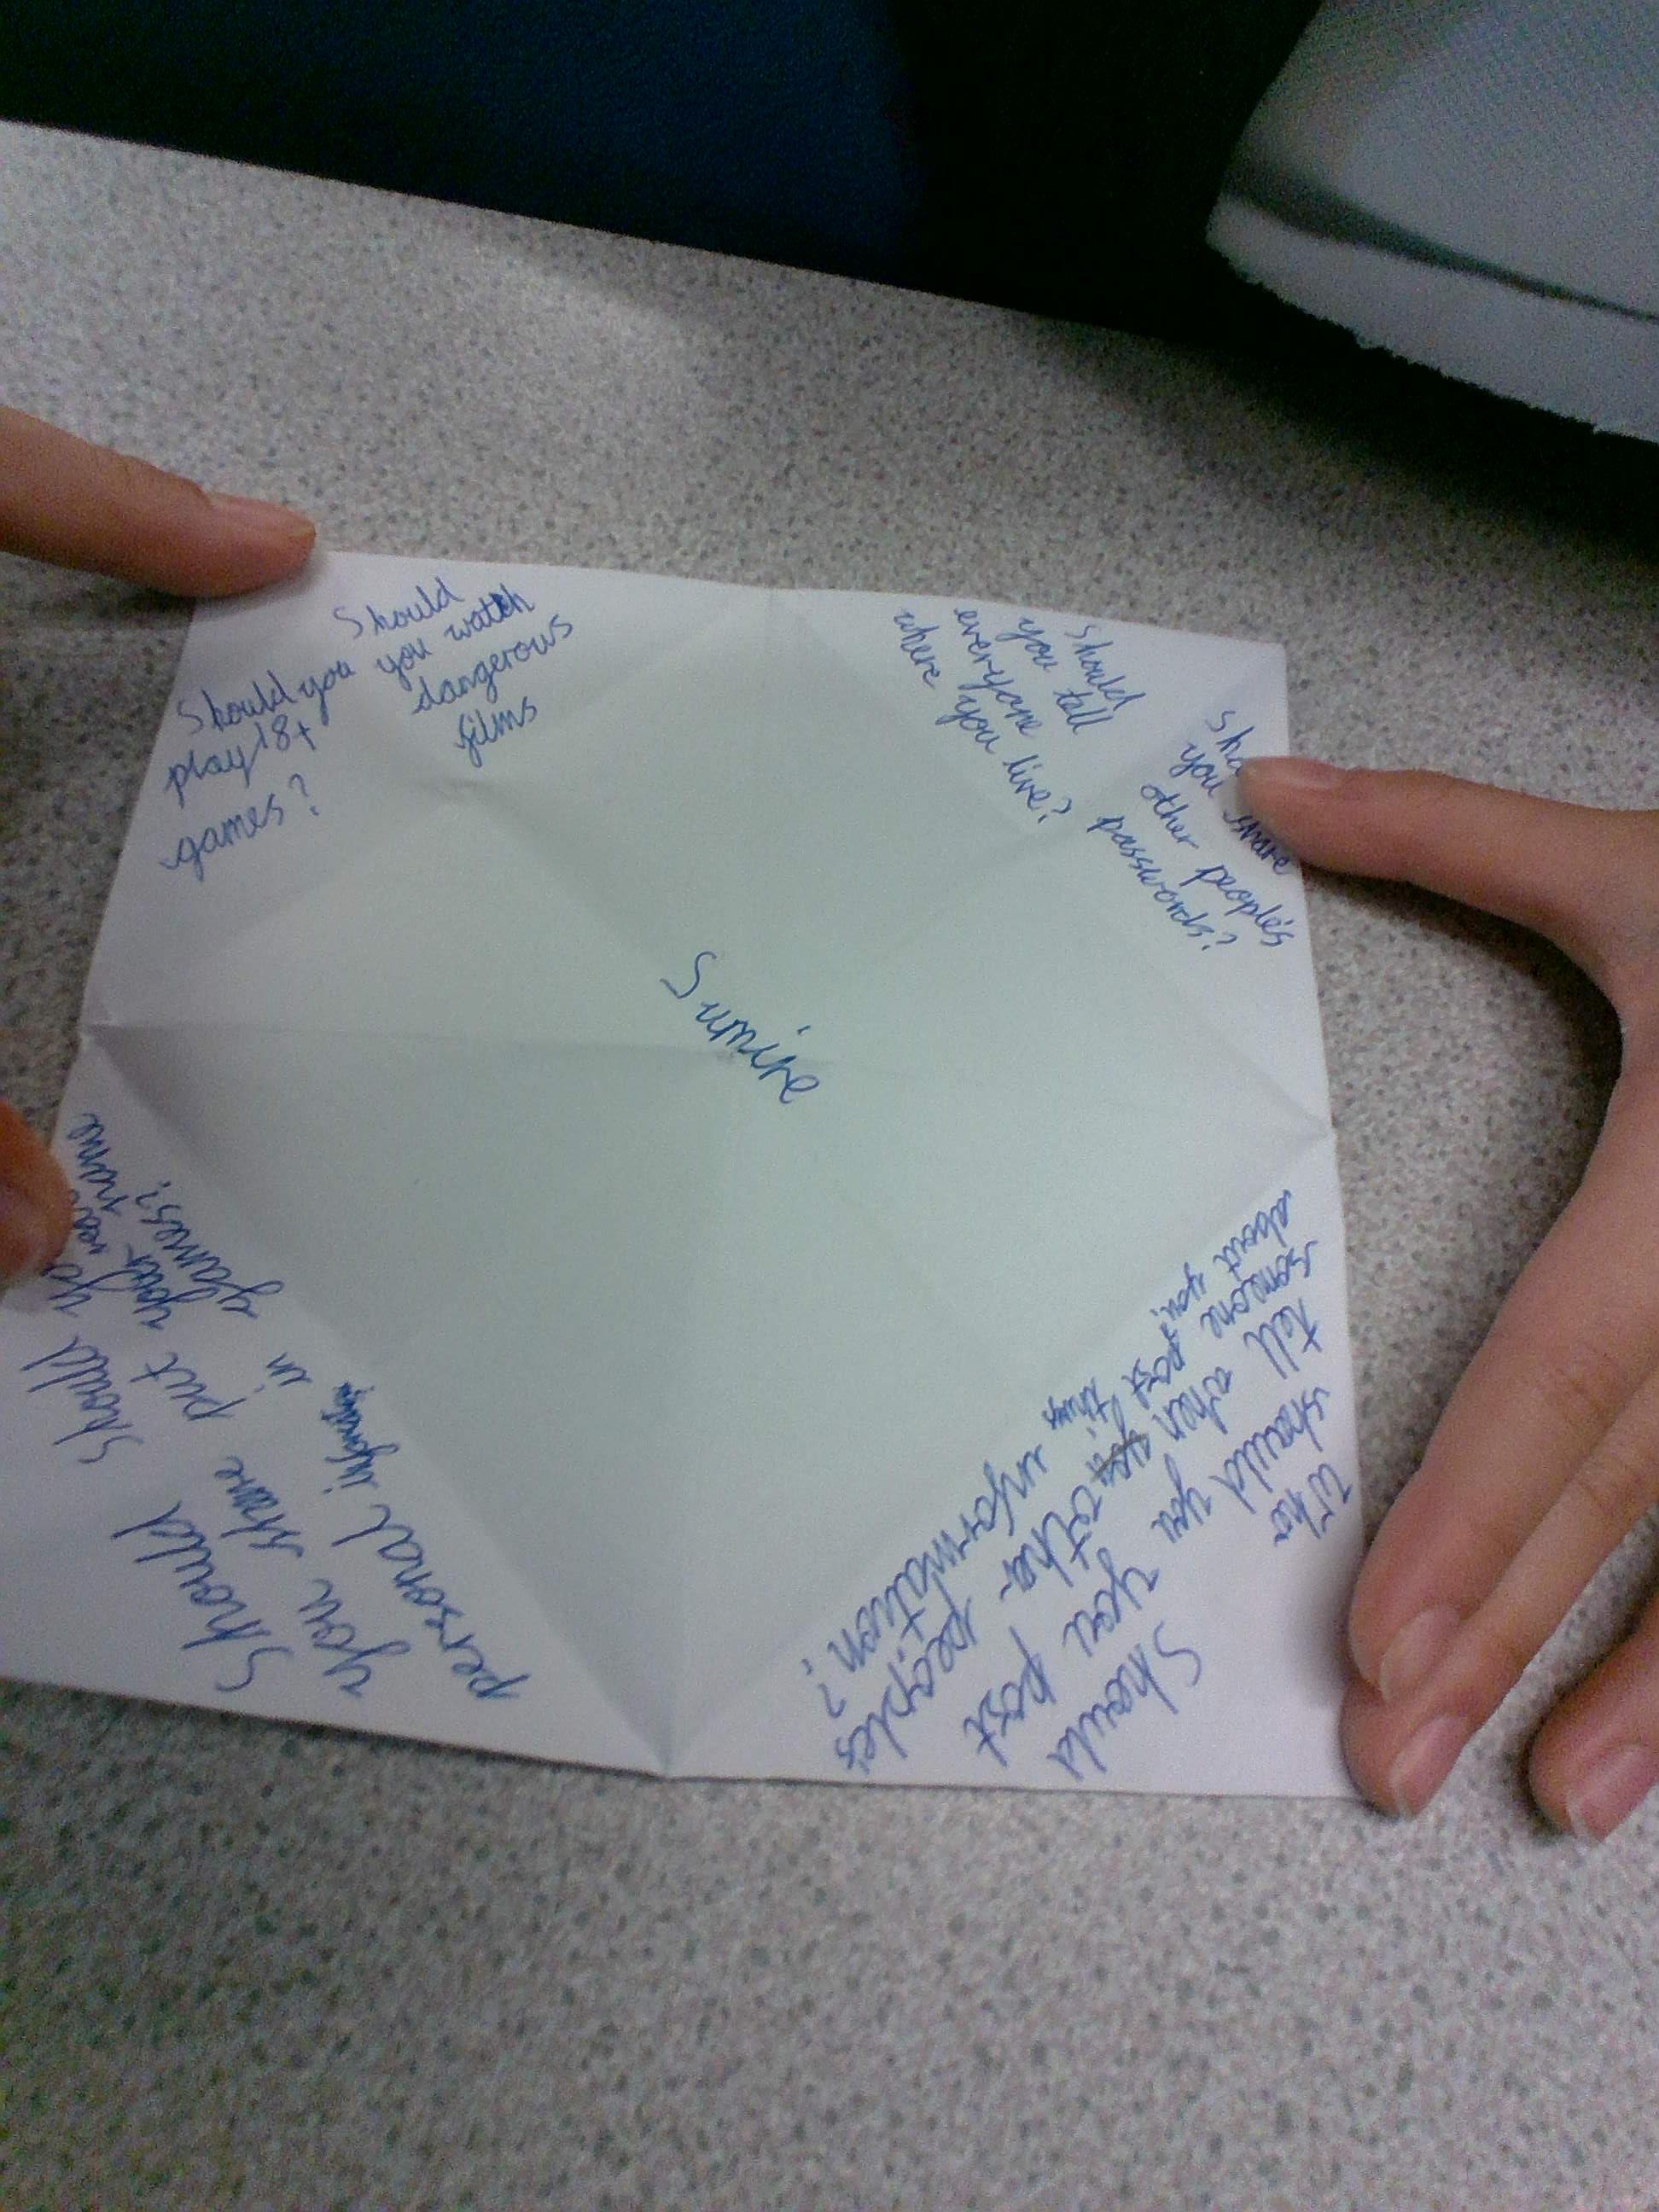 Should
you watch
dangerous
films
Should you
play 18+
games?
Should
you tell
everyone
where you live?
you share
other people's
passwords?
Sumire
Should
put your name
in games?
Should
you share
personal information
Who
should you
tell when
someone
post things
about you?
Should
you post
other
peoples
information?